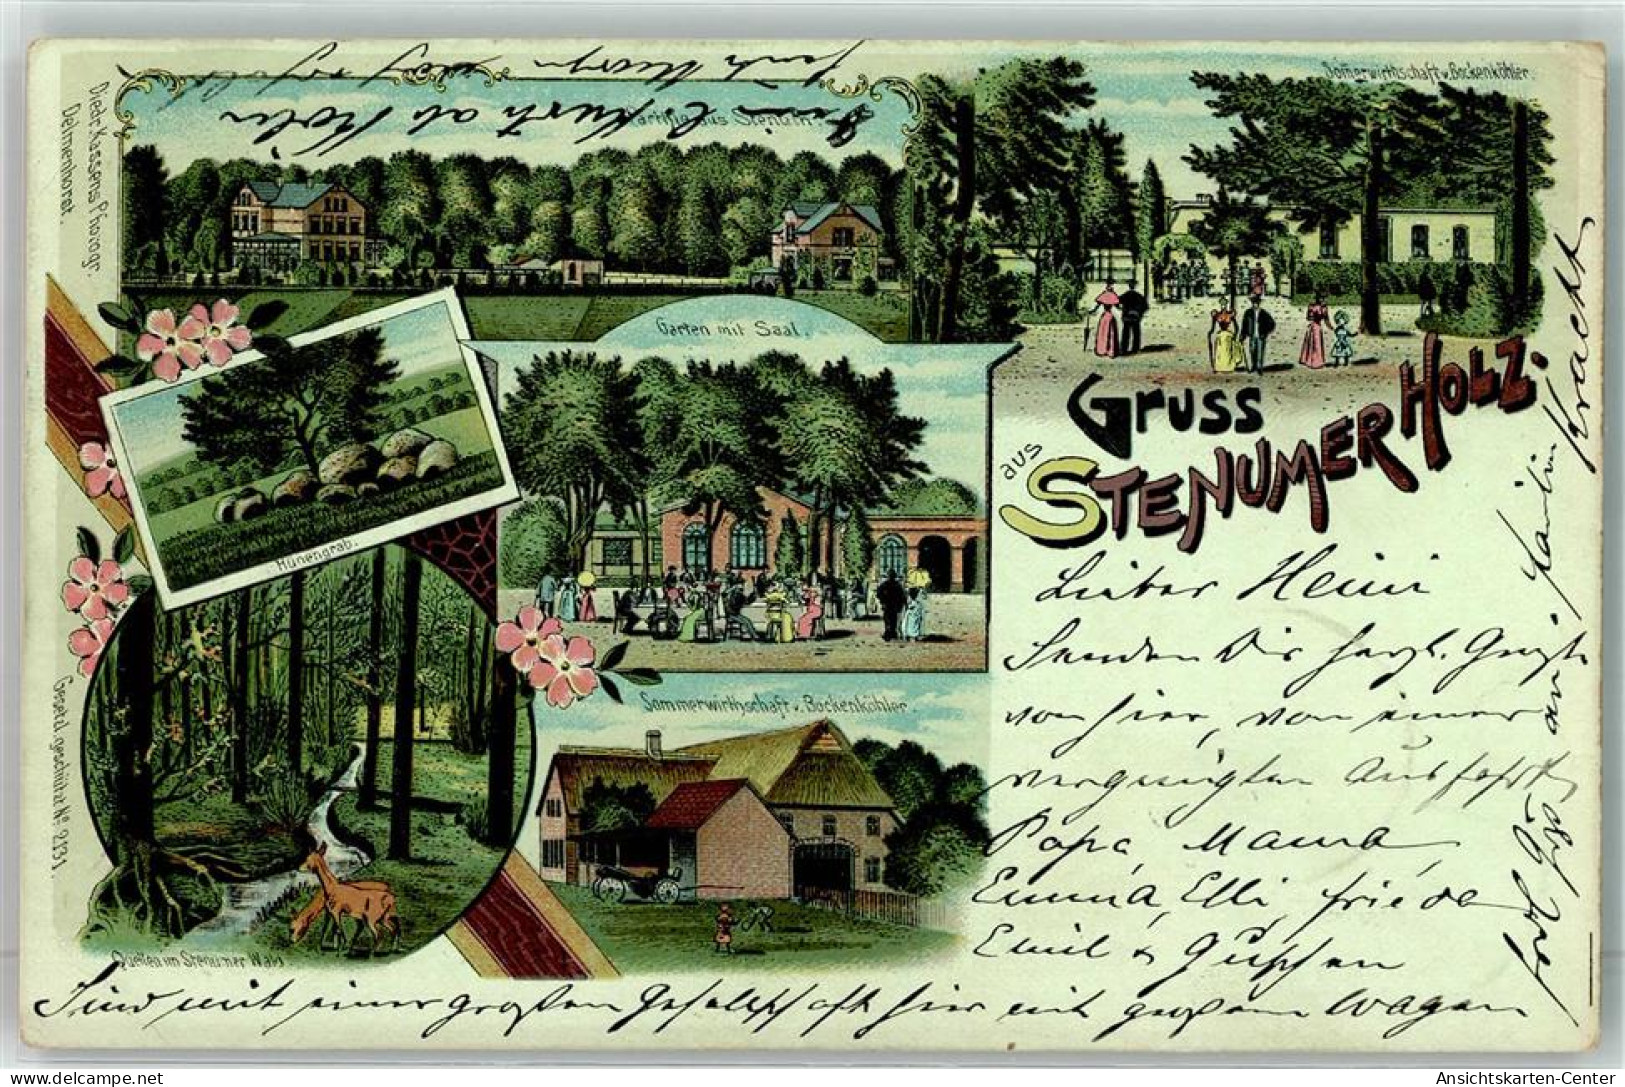 Dietr. Kassens Photogr.
Delmenhorst.
Partie aus Stenum
Sommerwirthschaft v. Bockenköhler.
Garten mit Saal.
Hünengrab.
Gruss
aus
STENUMER HOLZ.
Sommerwirthschaft v. Bockenköhler.
Quellen im Stenumer Wald
Gesetzl. geschützt No 2131
Lieber Heini
Senden Dir herzl. Grüße
von hier, von einer
vergnügten Ausfahrt
Papa, Mama,
Emma, Elli, Frieda
Emil & Guschen
Sind mit einer großen Gesellschaft hier mit großem Wagen
ab Köln
Ansichtskarten-Center